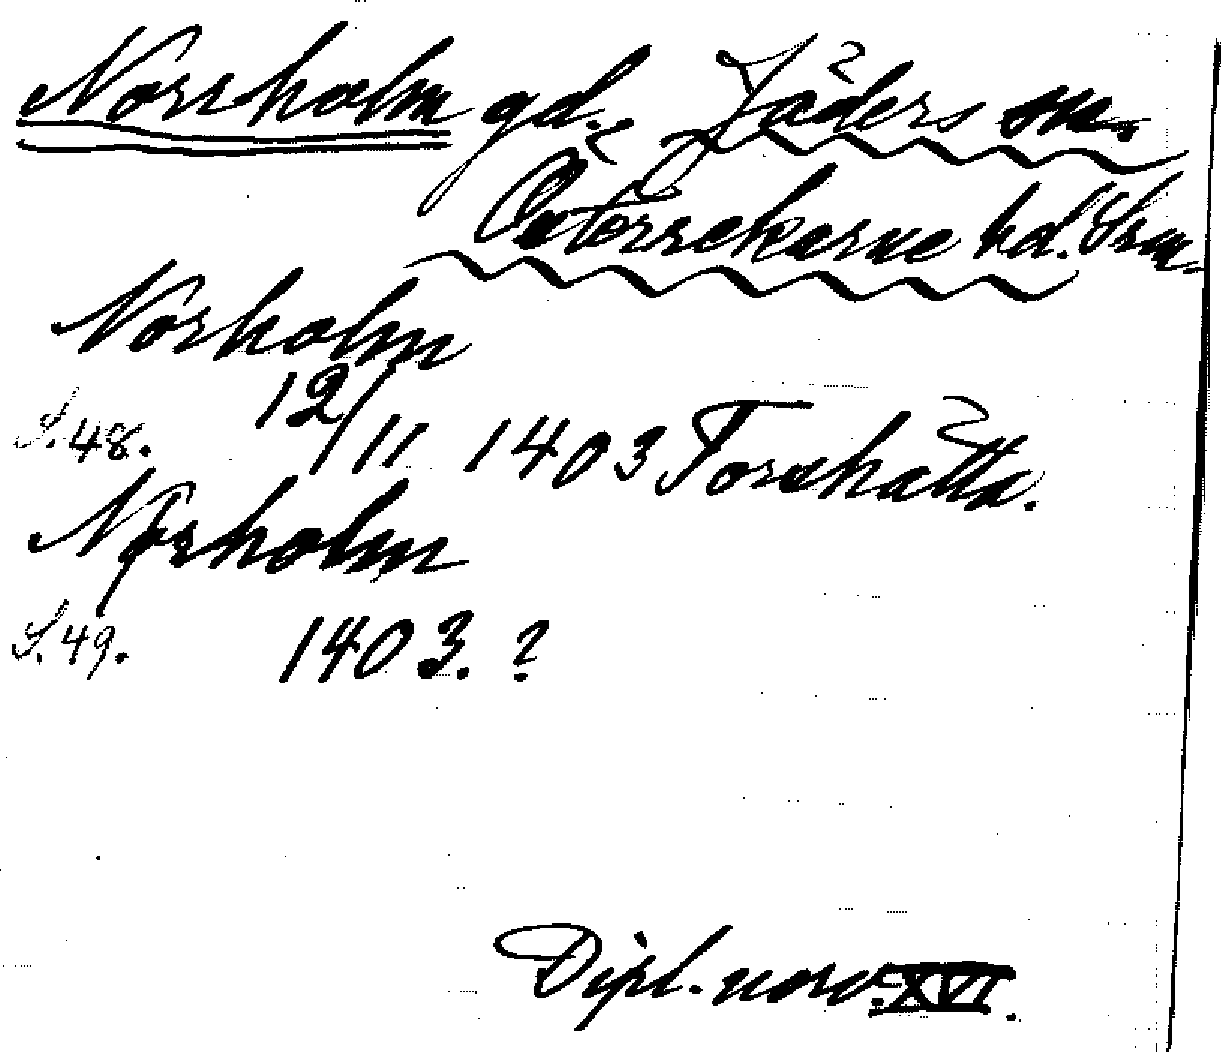 Norrholm gd., Jäders sn.
Österrekarne hd. Srm.
Norholm
S. 48. 12/11 1403 Torshälla.
Nørholm
S. 49. 1403. ?
Dipl. norv. XVI.